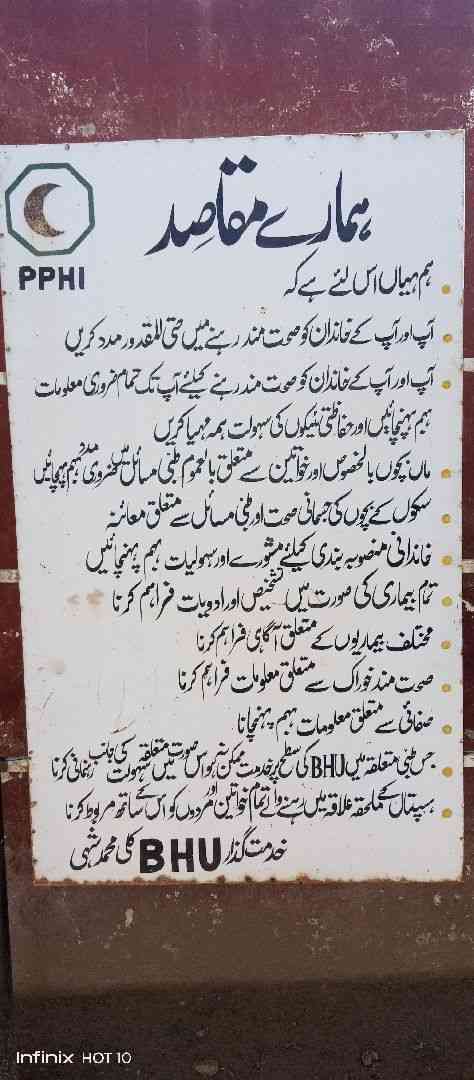 PPHI
ہمارے مقاصد
ہم یہاں اس لئے ہے کہ
آپ اور آپ کے خاندان کو صحت مند رہنے میں حتی للمقدور مدد کریں
آپ اور آپ کے خاندان کو صحت مند رہنے کیلئے آپ تک تمام ضروری معلومات
بہم پہنچائیں اور حفاظتی ٹیکوں کی سہولت ہمہ مہیا کریں
ماں بچوں بالخصوص اور خواتین سے متعلق بالعموم طبی مسائل میں ضروری مدد بہم پہچائیں
سکول کے بچوں کی جسمانی صحت اور طبی مسائل سے متعلق معائنہ
خاندانی منصوبہ بندی کیلئے مشورے اور سہولیات بہم پہنچائیں
تمام بیماری کی صورت میں تشخیص اور ادویات فراہم کرنا
مختلف بیماریوں کے متعلق آگاہی فراہم کرنا
صحت مند خوراک سے متعلق معلومات فراہم کرنا
صفائی سے متعلق معلومات بہم پہنچانا
جس طبی متعلقہ میں BHU کی سطح پر خدمت ممکن نہ ہو اس صورت میں متعلقہ سہولت کی جانب رہنمائی کرنا
ہسپتال کے ملحقہ علاقہ میں رہنے والے تمام خواتین اور مردوں کو اس کے ساتھ مربوط کرنا
خدمت گذار BHU کلی محمد شہی
Infinix HOT 10